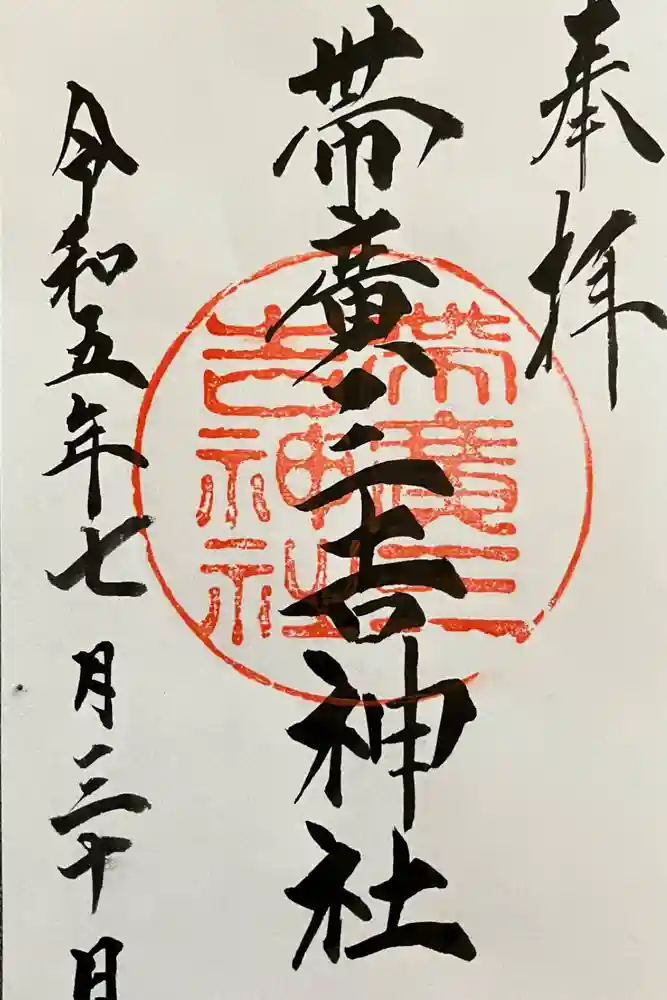 奉拝
帯廣三吉神社
帯廣三
吉神社
令和五年七月三十日